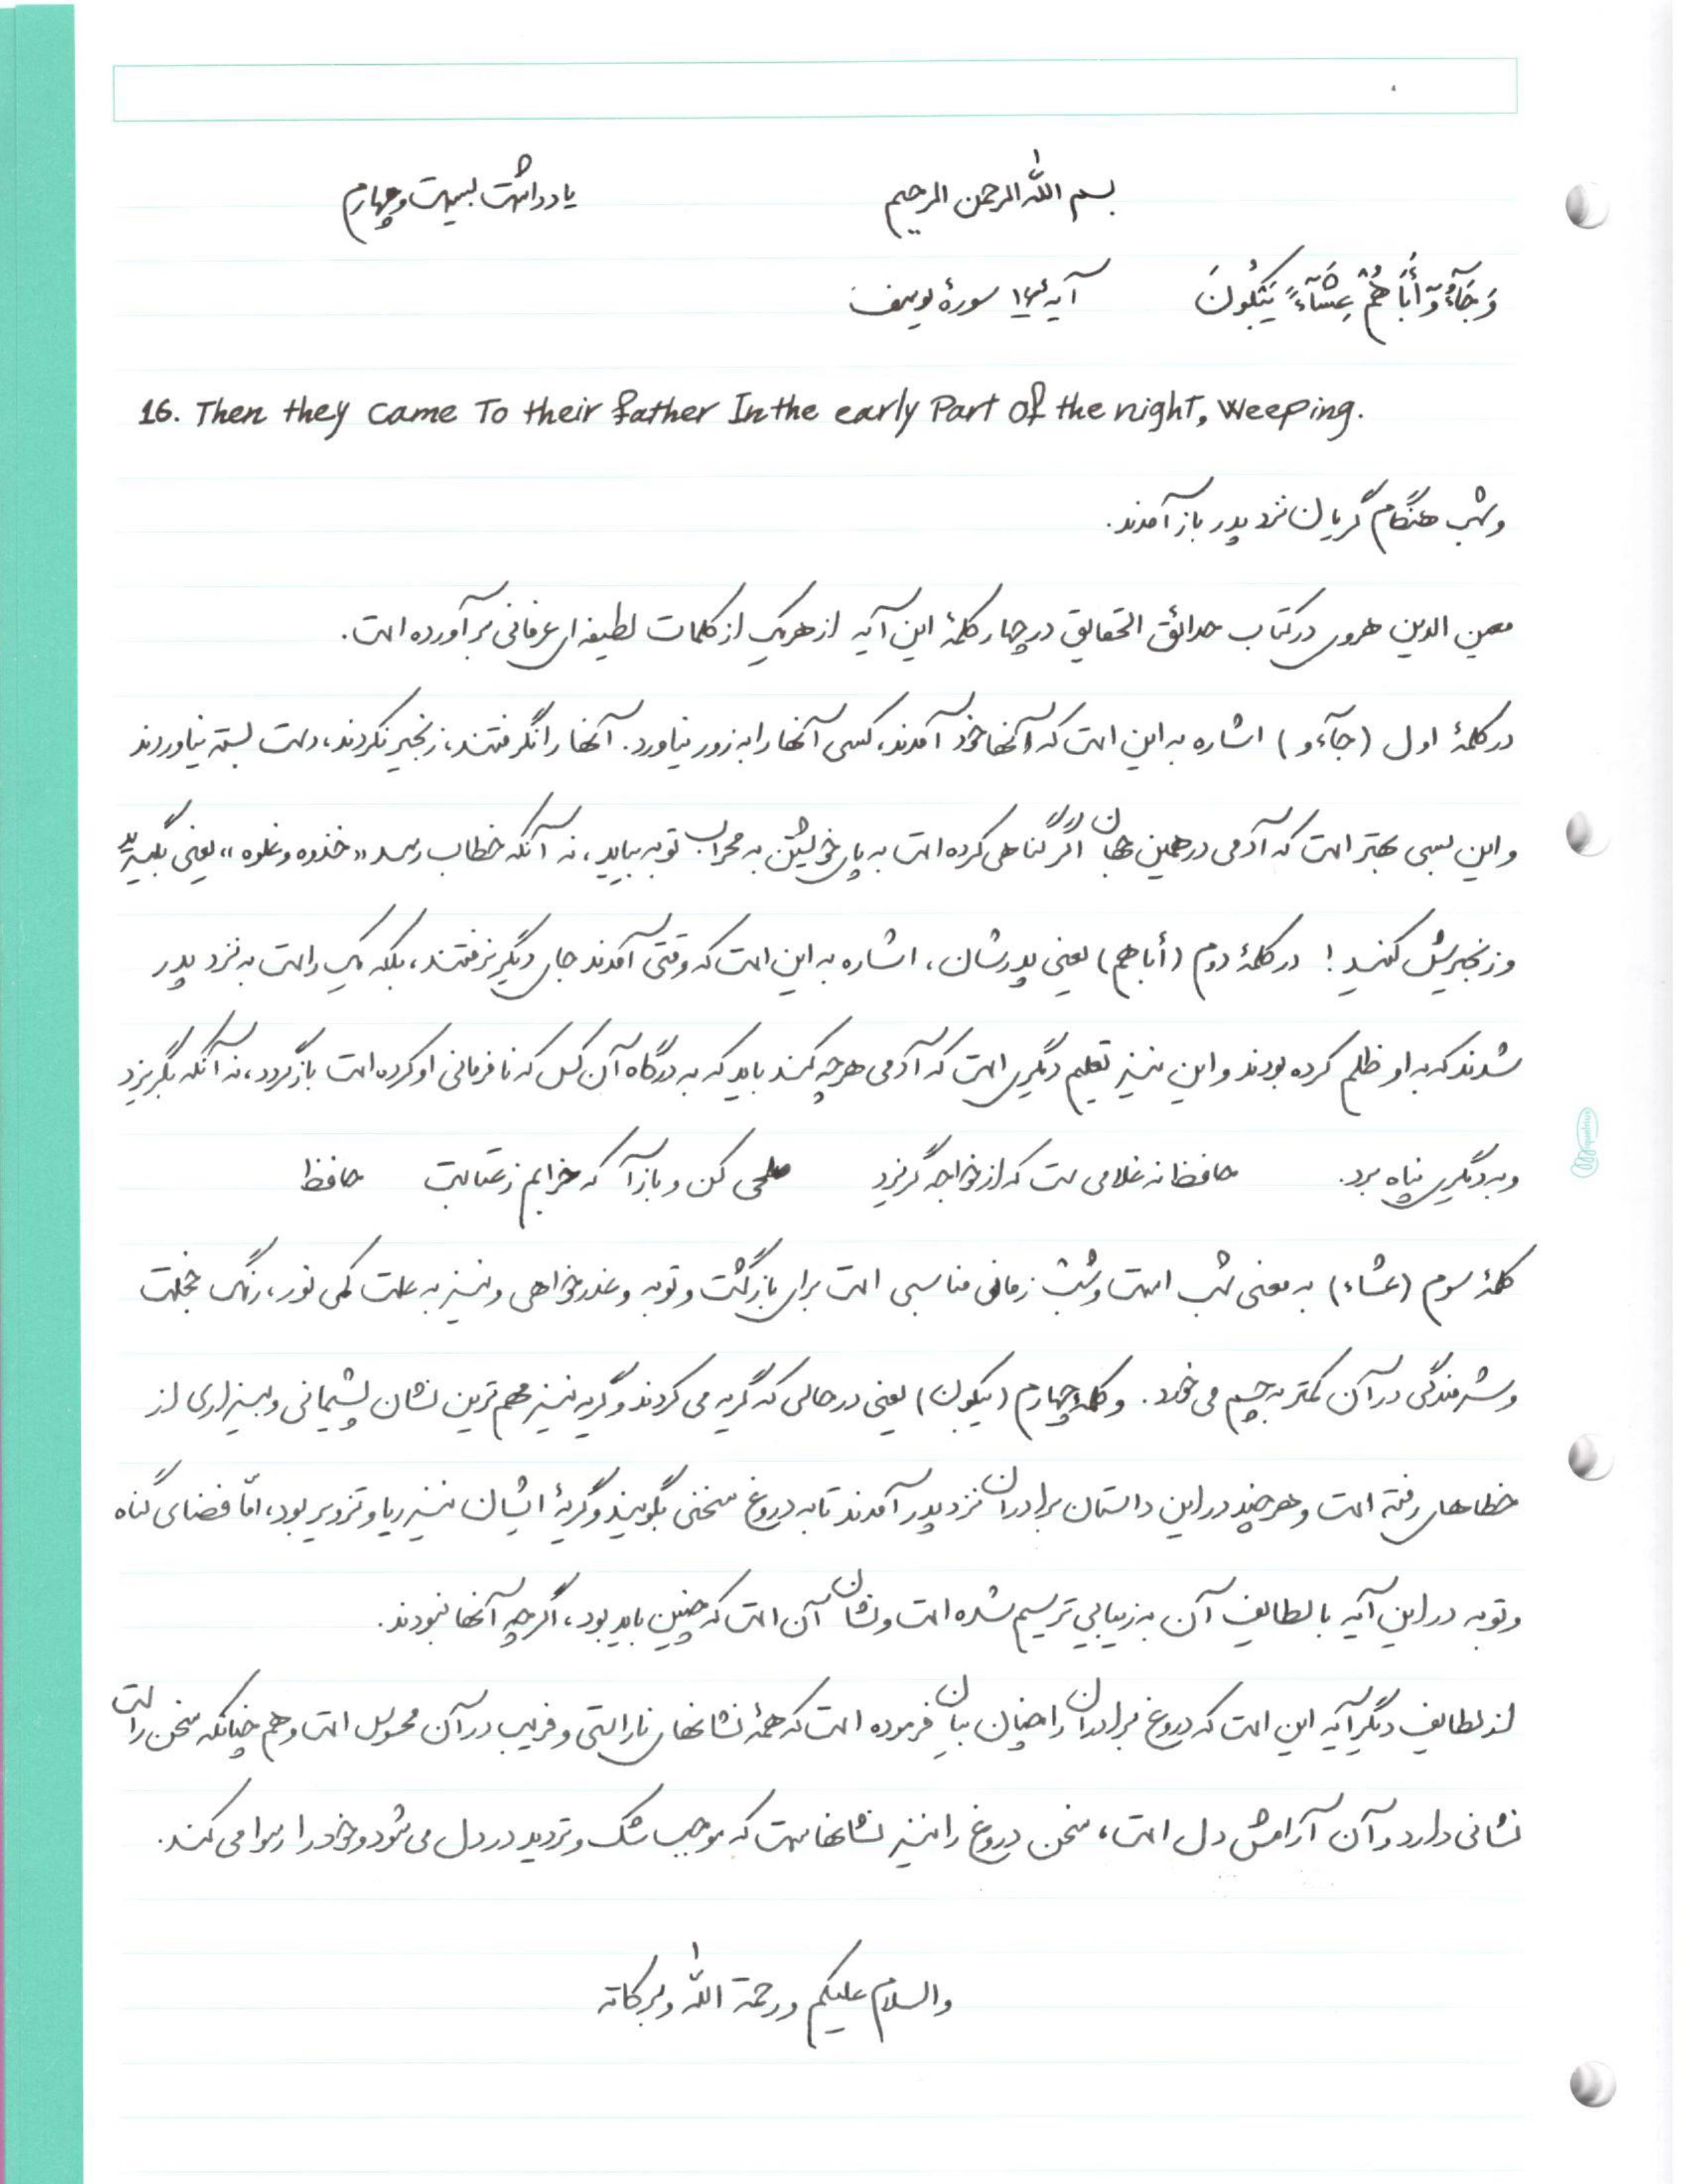 بسم الله الرحمن الرحیم یادداشت بیست و چهارم
وَ جَآءُوٓ أَبَاهُمْ عِشَآءً يَبْكُونَ آیهٔ ۱۶ سورهٔ یوسف
16. Then they came To their father In the early Part of the night, weeping.
و شب هنگام گریان نزد پدر باز آمدند.
معین الدین هروی در کتاب حدائق الحقایق در چهار کلمهٔ این آیه از هر یک از کلمات لطیفه ای عرفانی برآورده است.
در کلمهٔ اول (جآءو) اشاره به این است که آنها خود آمدند، کسی آنها را به زور نیاورد. آنها را نگرفتند، زنجیر نکردند، دست بسته نیاوردند
و این بسی بهتر است که آدمی در همین جهان اگر گناهی کرده است به پای خویشتن به محراب توبه بیاید، نه آنکه خطاب رسد «خذوه و غلوه» یعنی بگیرید
و زنجیرش کنید! در کلمهٔ دوم (أباهم) یعنی پدرشان، اشاره به این است که وقتی آمدند جای دیگر نرفتند، بلکه یک راست به نزد پدر
شدند که به او ظلم کرده بودند و این نیز تعلیم دیگری است که آدمی هرچه کند باید که به درگاه آن کس که نافرمانی او کرده است بازگردد، نه آنکه بگریزد
و به دیگری پناه برد. حافظ نه غلامی ست که از خواجه گریزد صلحی کن و بازآ که خرابم ز عتابت حافظ
کلمهٔ سوم (عشاء) به معنی شب است و شب زمانی مناسبی است برای بازگشت و توبه و عذرخواهی و نیز به علت کمی نور، رنگ خجلت
و شرمندگی در آن کمتر به چشم می خورد. و کلمهٔ چهارم (یبکون) یعنی در حالی که گریه می کردند و گریه نیز مهم ترین نشان پشیمانی و بیزاری از
خطاهای رفته است و هرچند در این داستان برادران نزد پدر آمدند تا به دروغ سخنی بگویند و گریهٔ ایشان نیز ریا و تزویر بود، امّا فضای گناه
و توبه در این آیه با لطایف آن به زیبایی ترسیم شده است و نشان آن است که چنین باید بود، اگرچه آنها نبودند.
از لطایف دیگر آیه این است که دروغ برادران را چنان بیان فرموده است که همهٔ نشانهای ناراستی و فریب در آن محسوس است و هم چنانکه سخن راست
نشانی دارد و آن آرامش دل است، سخن دروغ را نیز نشانهاست که موجب شک و تردید در دل می شود و خود را رسوا می کند.
والسلام علیکم و رحمة الله و برکاته